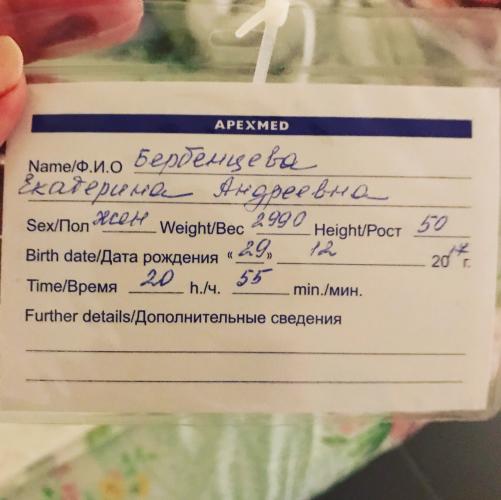 APEXMED
Name/Ф.И.О Бербенцева
Екатерина Андреевна
Sex/Пол жен Weight/Вес 2990 Height/Рост 50
Birth date/Дата рождения « 29 » 12 2017 г.
Time/Время 20 h./ч. 55 min./мин.
Further details/Дополнительные сведения